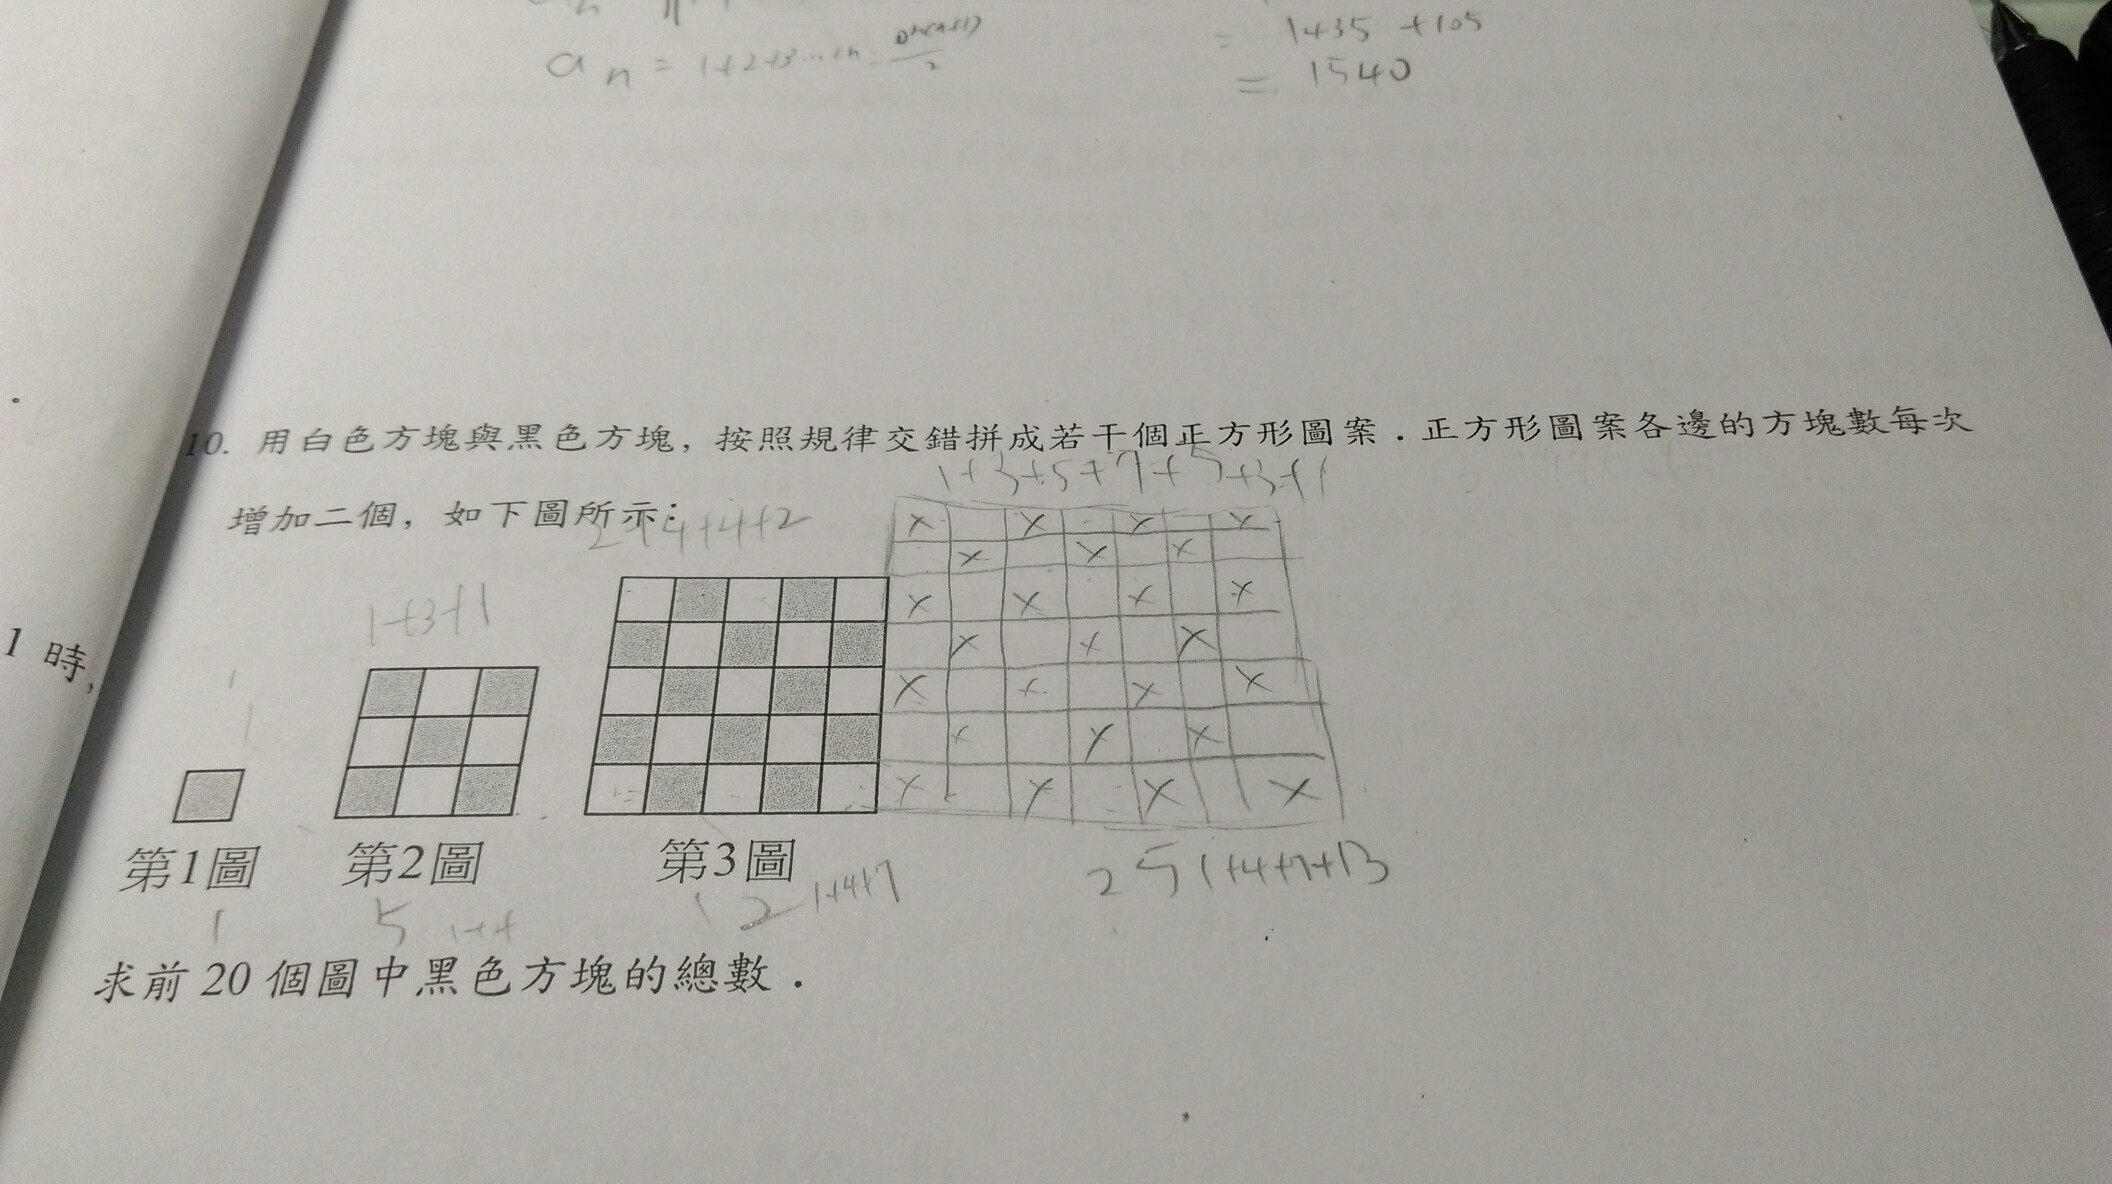 aₙ = 1+2+3...+n = n(n+1)/2
= 1435 +105
= 1540
10. 用白色方塊與黑色方塊，按照規律交錯拼成若干個正方形圖案．正方形圖案各邊的方塊數每次
1+3+5+7+5+3+1
增加二個，如下圖所示：
2+4+4+2
1+3+1
1 時，
第1圖 第2圖 第3圖
1 5 1+4 12 1+4+7 25 1+4+7+13
求前 20 個圖中黑色方塊的總數．